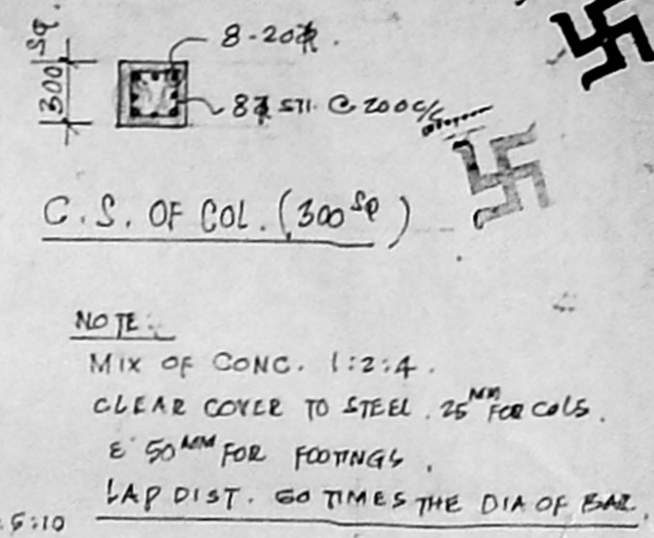 300 SQ.
8-20Φ.
8Φ STI. @ 200 C/
C.S. OF COL. (300 SQ)
NOTE:
MIX OF CONC. 1:2:4.
CLEAR COVER TO STEEL. 25MM FOR COLS.
& 50MM FOR FOOTINGS.
LAP DIST. 60 TIMES THE DIA OF BAR.
5:10